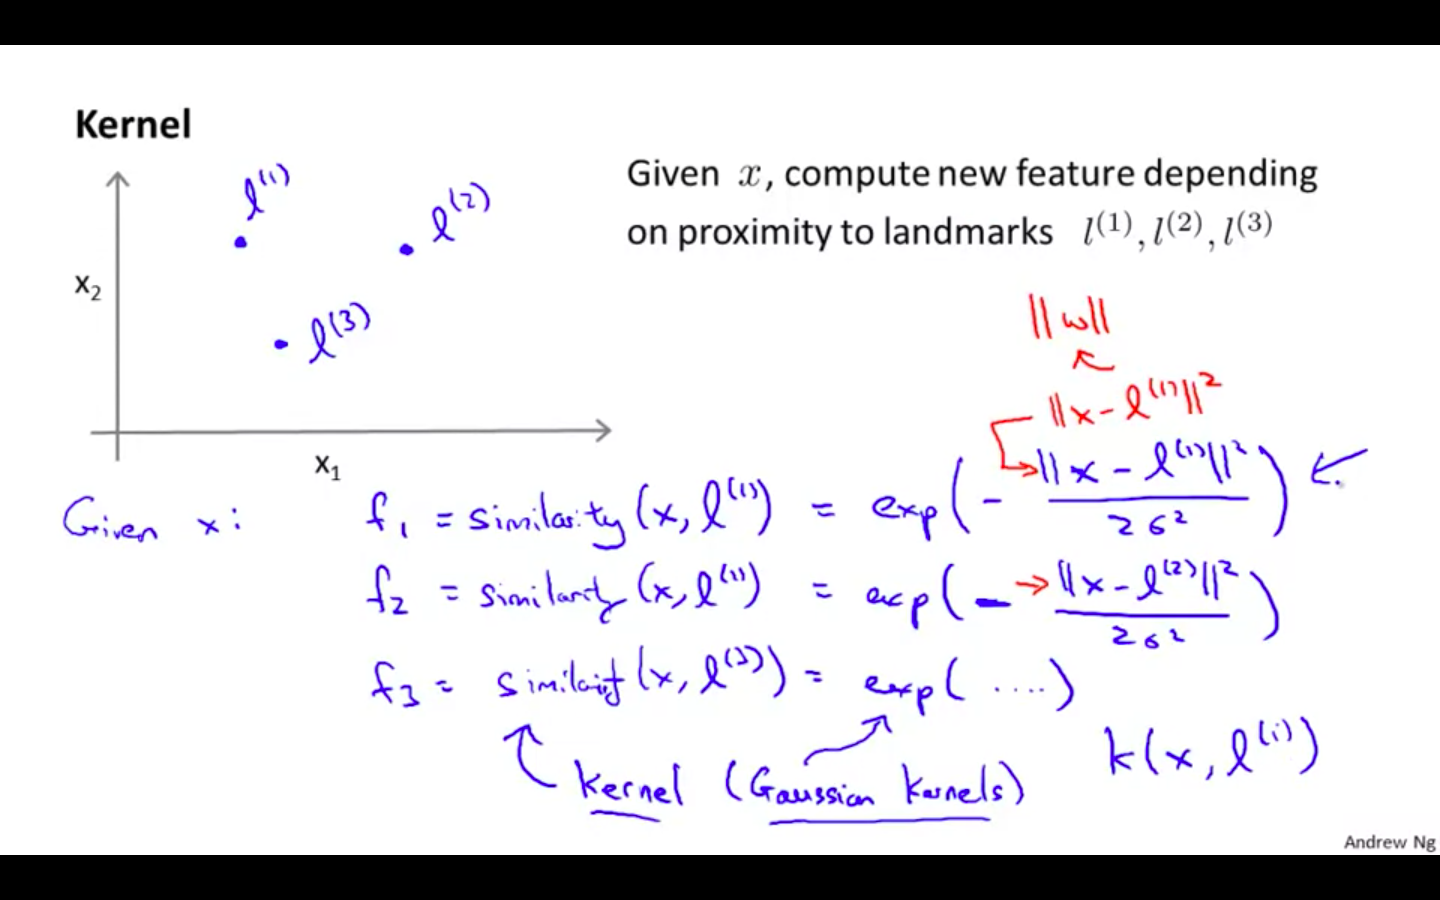 Kernel
l⁽¹⁾
l⁽²⁾
x₂
l⁽³⁾
x₁
Given x, compute new feature depending
on proximity to landmarks l⁽¹⁾, l⁽²⁾, l⁽³⁾
||w||
||x - l⁽¹⁾||²
Given x: f₁ = similarity(x, l⁽¹⁾) = exp(- ||x - l⁽¹⁾||² / 2σ²)
f₂ = similarity(x, l⁽¹⁾) = exp(- ||x - l⁽²⁾||² / 2σ²)
f₃ = similarity(x, l⁽³⁾) = exp( .... )
kernel (Gaussian kernels) k(x, l⁽ⁱ⁾)
Andrew Ng